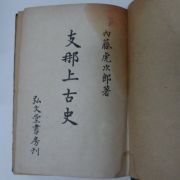 內藤虎次郎著
支那上古史
弘文堂書房刊